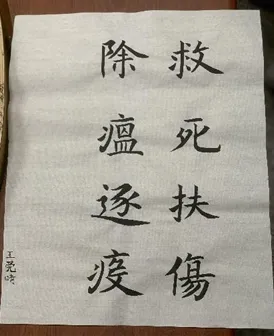 救死扶傷
除瘟逐疫